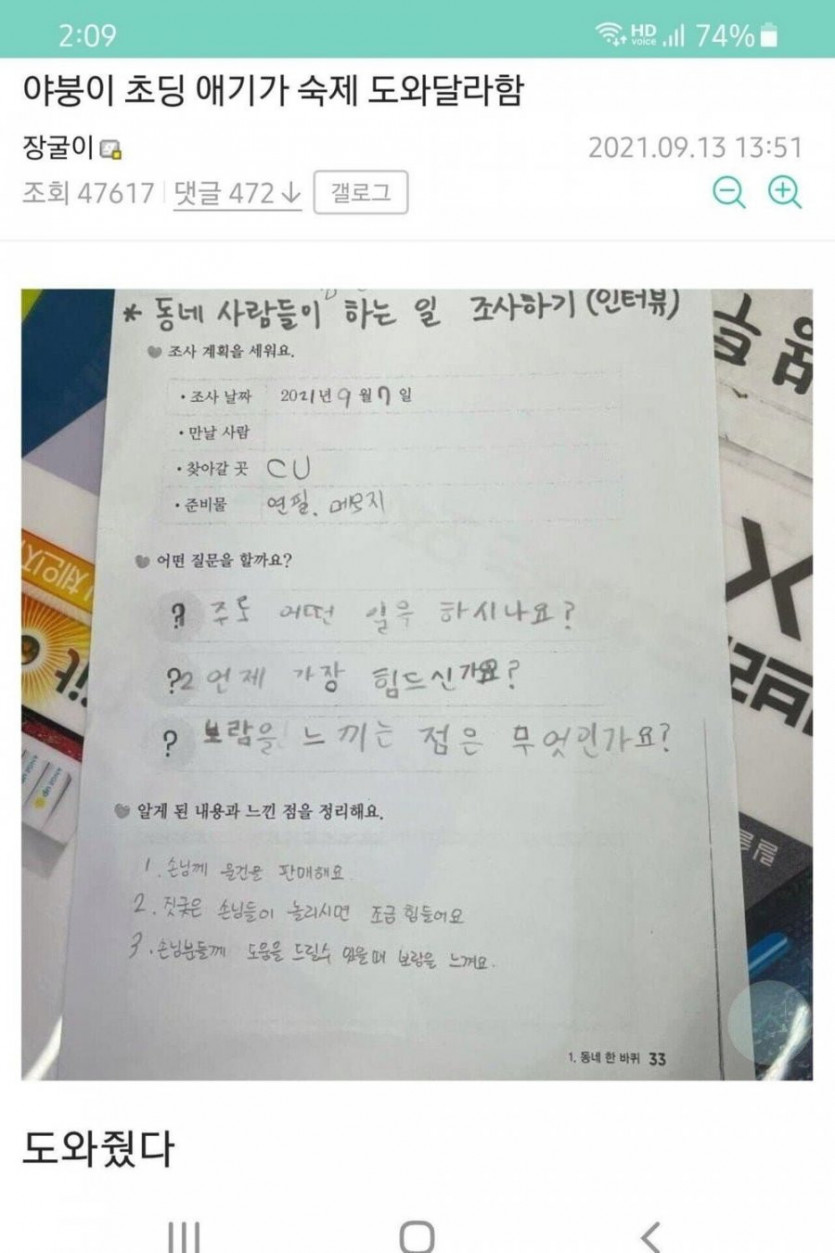 2:09 HD voice 74%
야붕이 초딩 애기가 숙제 도와달라함
장굴이
2021.09.13 13:51
조회 47617 댓글 472↓ 갤로그
* 동네 사람들이 하는 일 조사하기 (인터뷰)
조사 계획을 세워요.
· 조사 날짜 2021년 9월 7일
· 만날 사람
· 찾아갈 곳 CU
· 준비물 연필, 메모지
어떤 질문을 할까요?
? 주로 어떤 일을 하시나요?
?2 언제 가장 힘드신가요?
? 보람을 느끼는 점은 무엇인가요?
알게 된 내용과 느낀 점을 정리해요.
1. 손님께 물건을 판매해요.
2. 짓궂은 손님들이 놀리시면 조금 힘들어요
3. 손님분들께 도움을 드릴수 있을때 보람을 느껴요.
1. 동네 한 바퀴 33
도와줬다